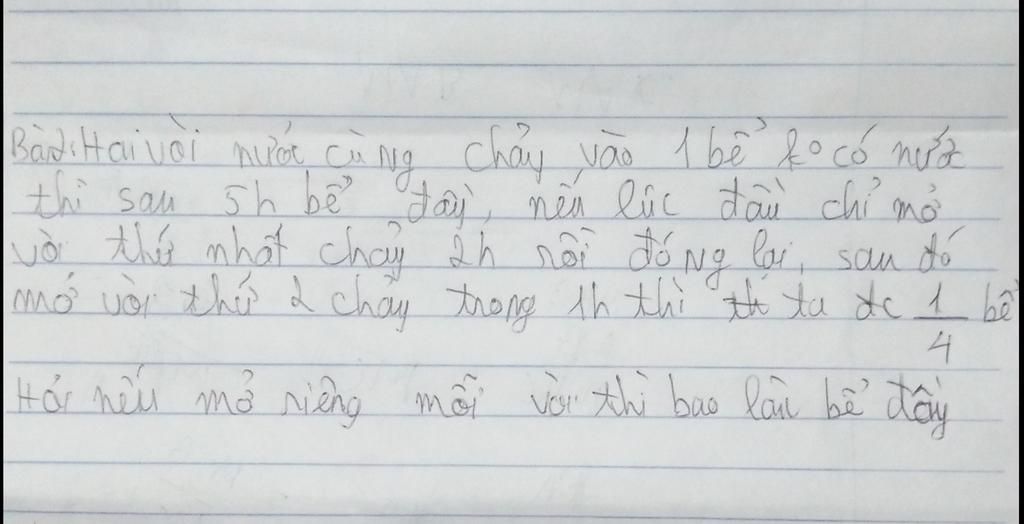 Bài2: Hai vòi nước cùng chảy vào 1 bể ko có nước
thì sau 5h bể đầy, nếu lúc đầu chỉ mở
vòi thứ nhất chảy 2h rồi đóng lại, sau đó
mở vòi thứ 2 chảy trong 1h thì ta đc 1/4 bể
Hỏi nếu mở riêng mỗi vòi thì bao lâu bể đầy